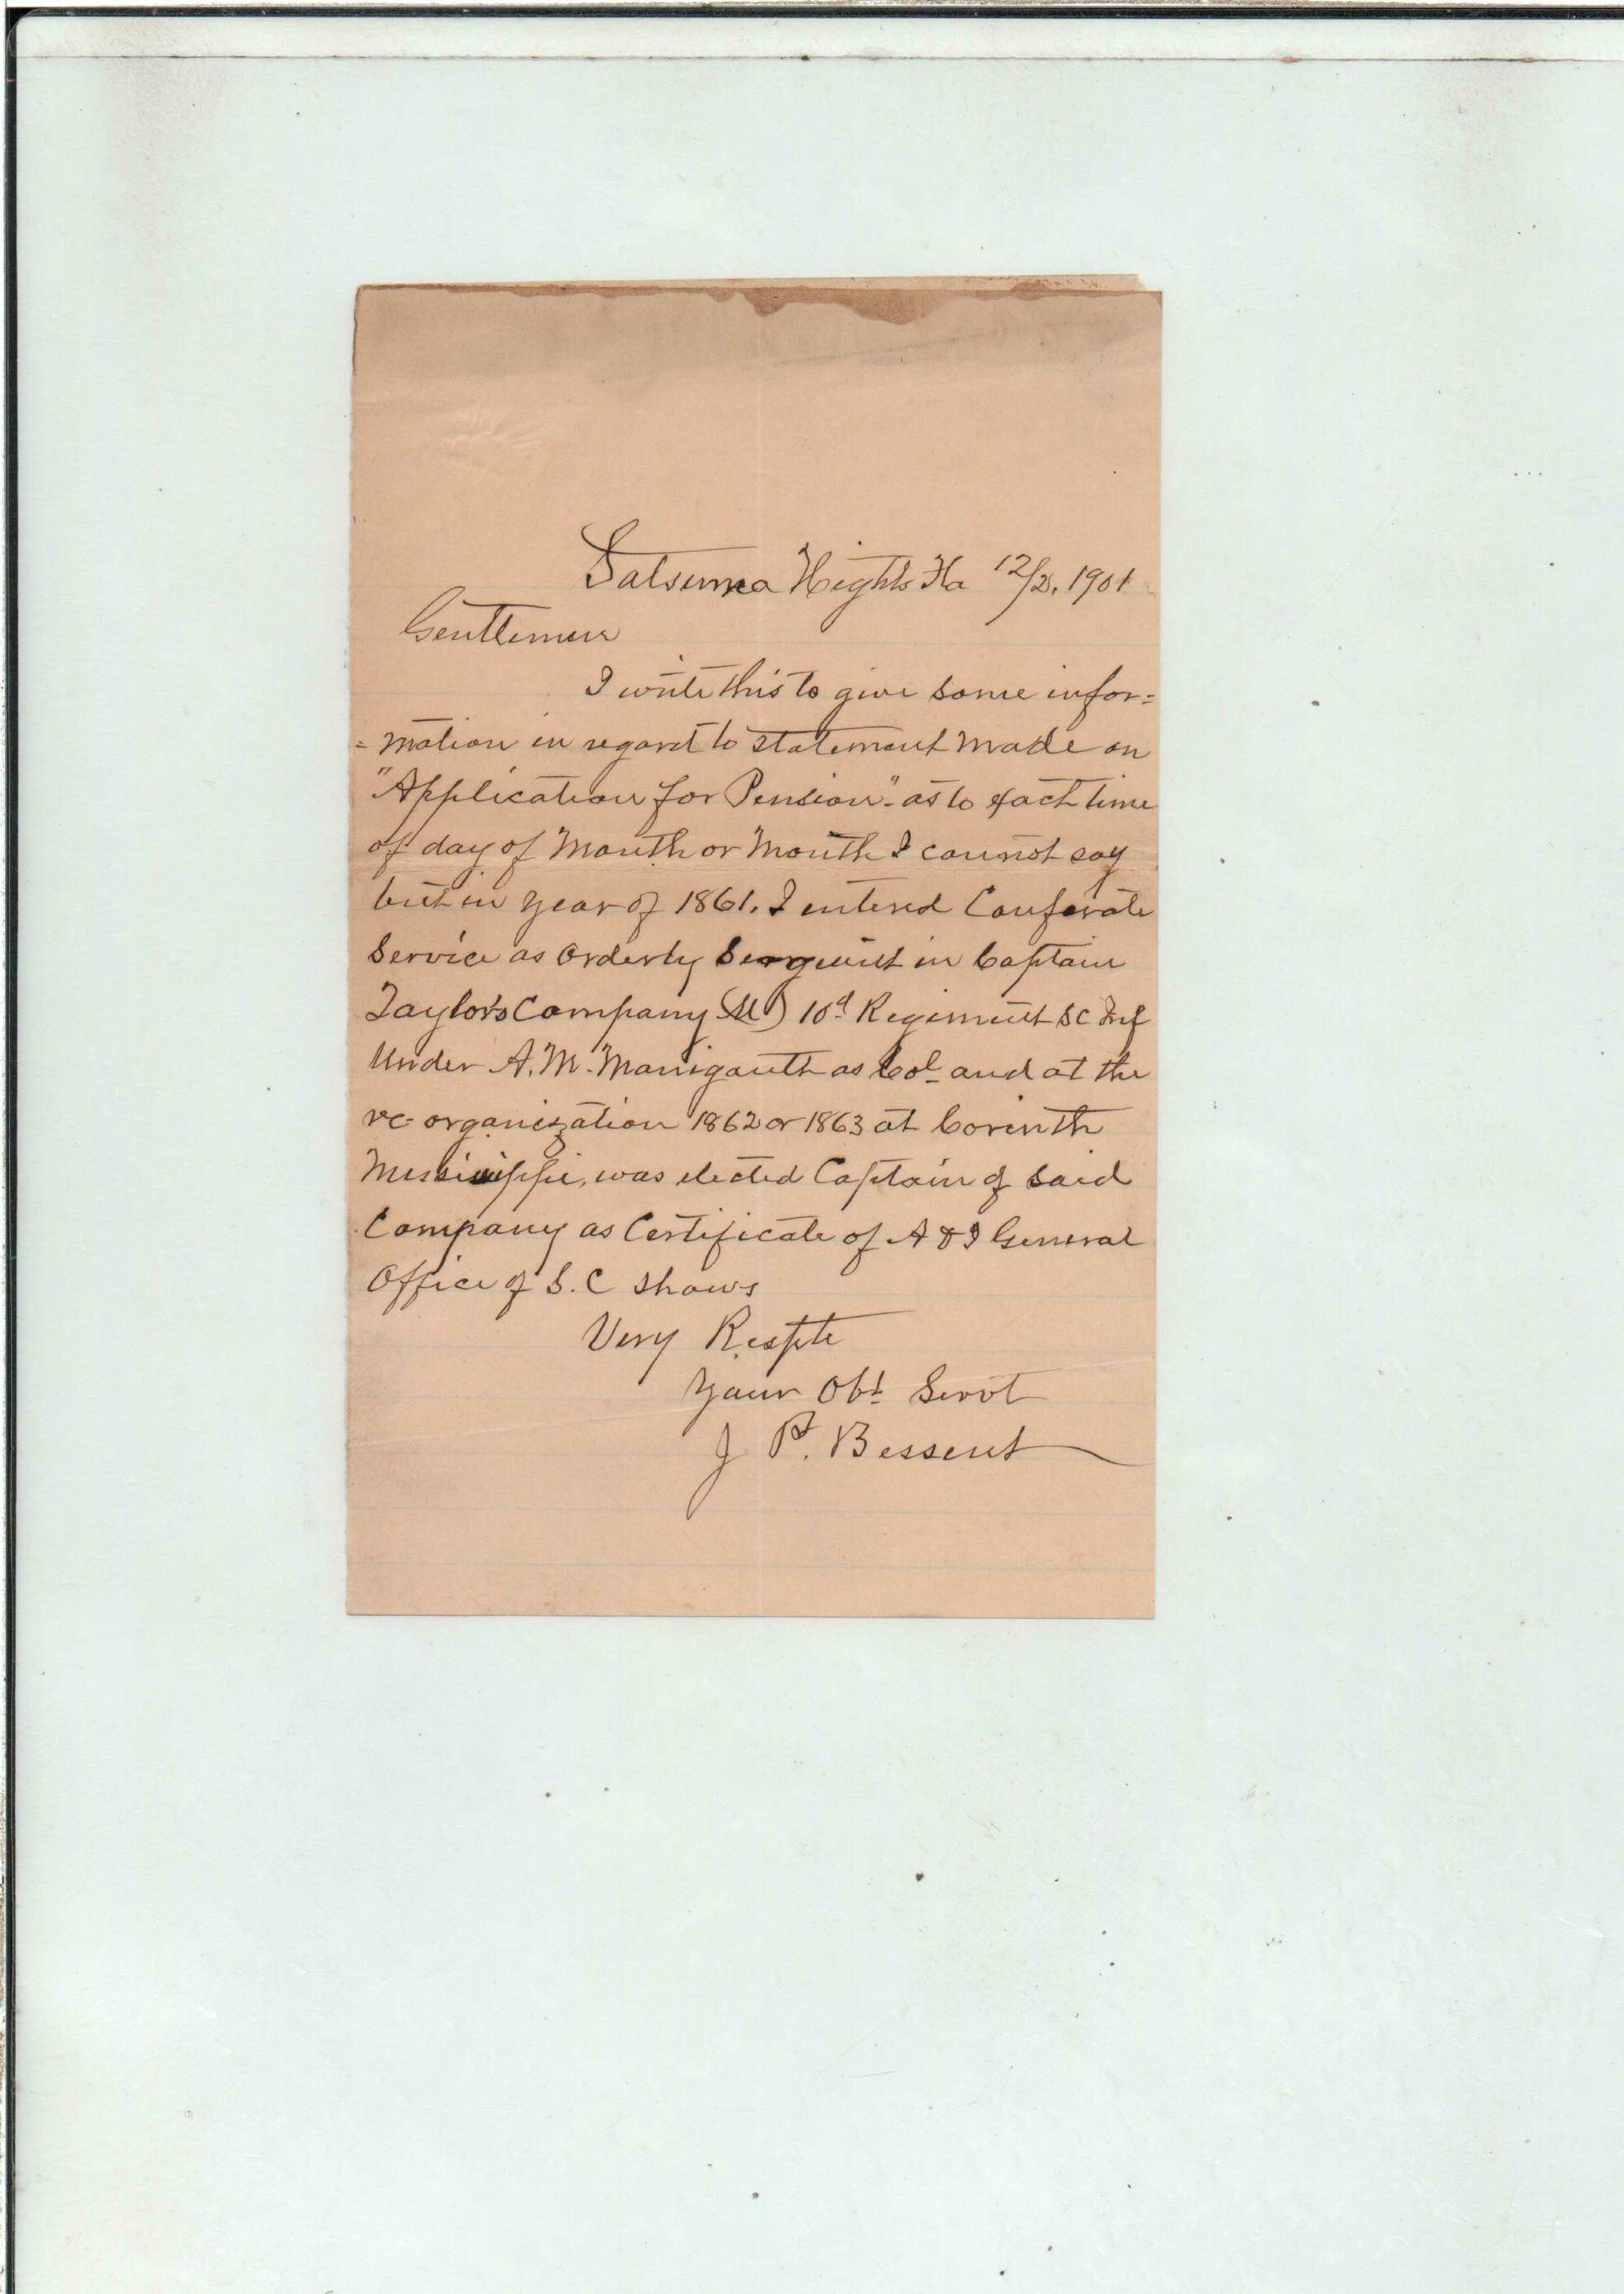 Satsuma Hights Fla 12/2, 1901
Gentlemen
I write this to give some infor=
=mation in regard to statement made on
"Application for Pension" - as to exact time
of day of Month or Month I cannot say
but in year of 1861. I entered Conferate
Service as Orderly Sergeint in Captain
Taylors Company (M) 10d Regiment SC Inf
Under A. M. Manigauth as Col and at the
re-organization 1862 or 1863 at Corinth
Mississippi, was elected Captain of said
Company as Certificate of A & I General
Office of S. C shows
Very Respte
Your Obt Servt
J P. Bessent